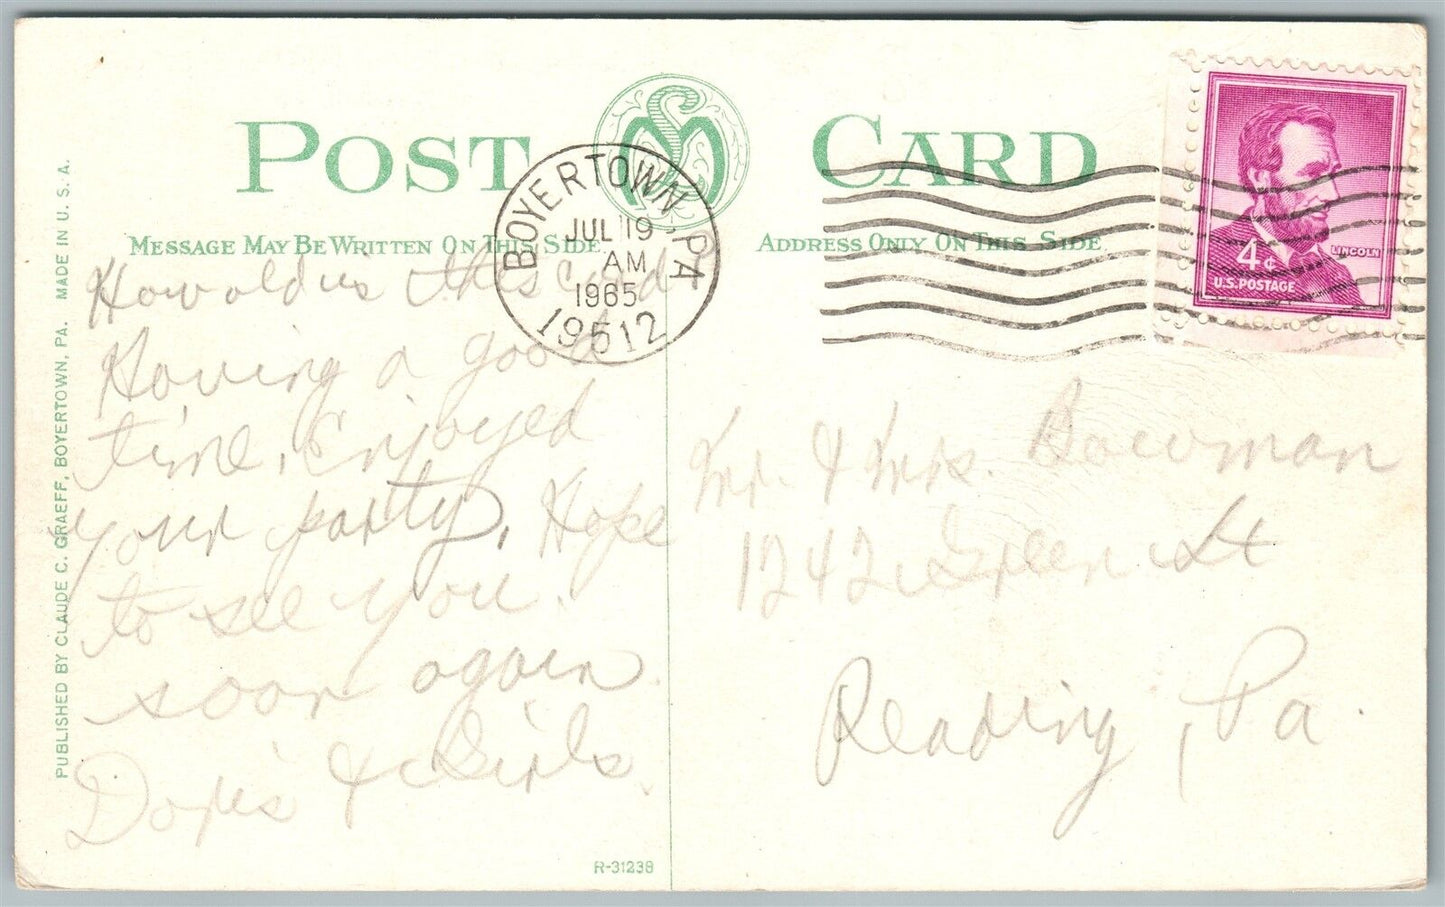 POST CARD
MESSAGE MAY BE WRITTEN ON THIS SIDE
ADDRESS ONLY ON THIS SIDE
BOYERTOWN, PA
JUL 19
AM
1965
19512
LINCOLN
4¢
U.S. POSTAGE
How old is this card?
Having a good
time. Enjoyed
your party. Hope
to see you
soon again.
Doris & Girls.
Mr. & Mrs. Bowman
1242 Green St
Reading, Pa.
PUBLISHED BY CLAUDE C. GRAEFF, BOYERTOWN, PA. MADE IN U. S. A.
R-31238